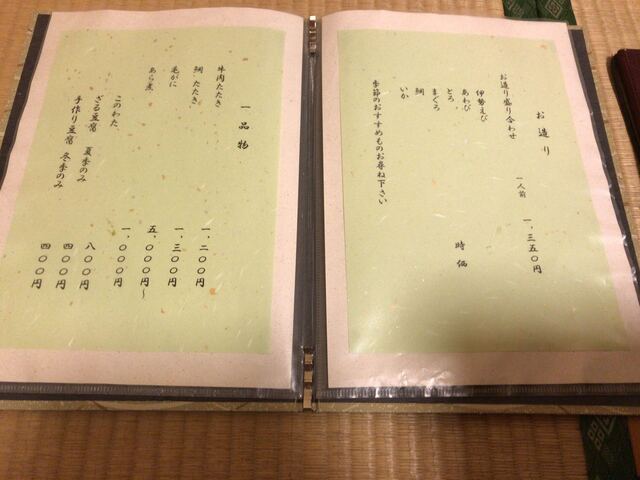 お造り
お造り盛り合わせ 一人前 一、三五〇円
伊勢えび
あわび
とろ 時価
まぐろ
鯛
いか
季節のおすすめものお尋ね下さい
一品物
牛肉たたき 一、二〇〇円
鯛たたき 一、三〇〇円
毛がに 五、〇〇〇円〜
あら煮 一、〇〇〇円
このわた 八〇〇円
ざる豆腐 夏季のみ 四〇〇円
手作り豆腐 冬季のみ 四〇〇円